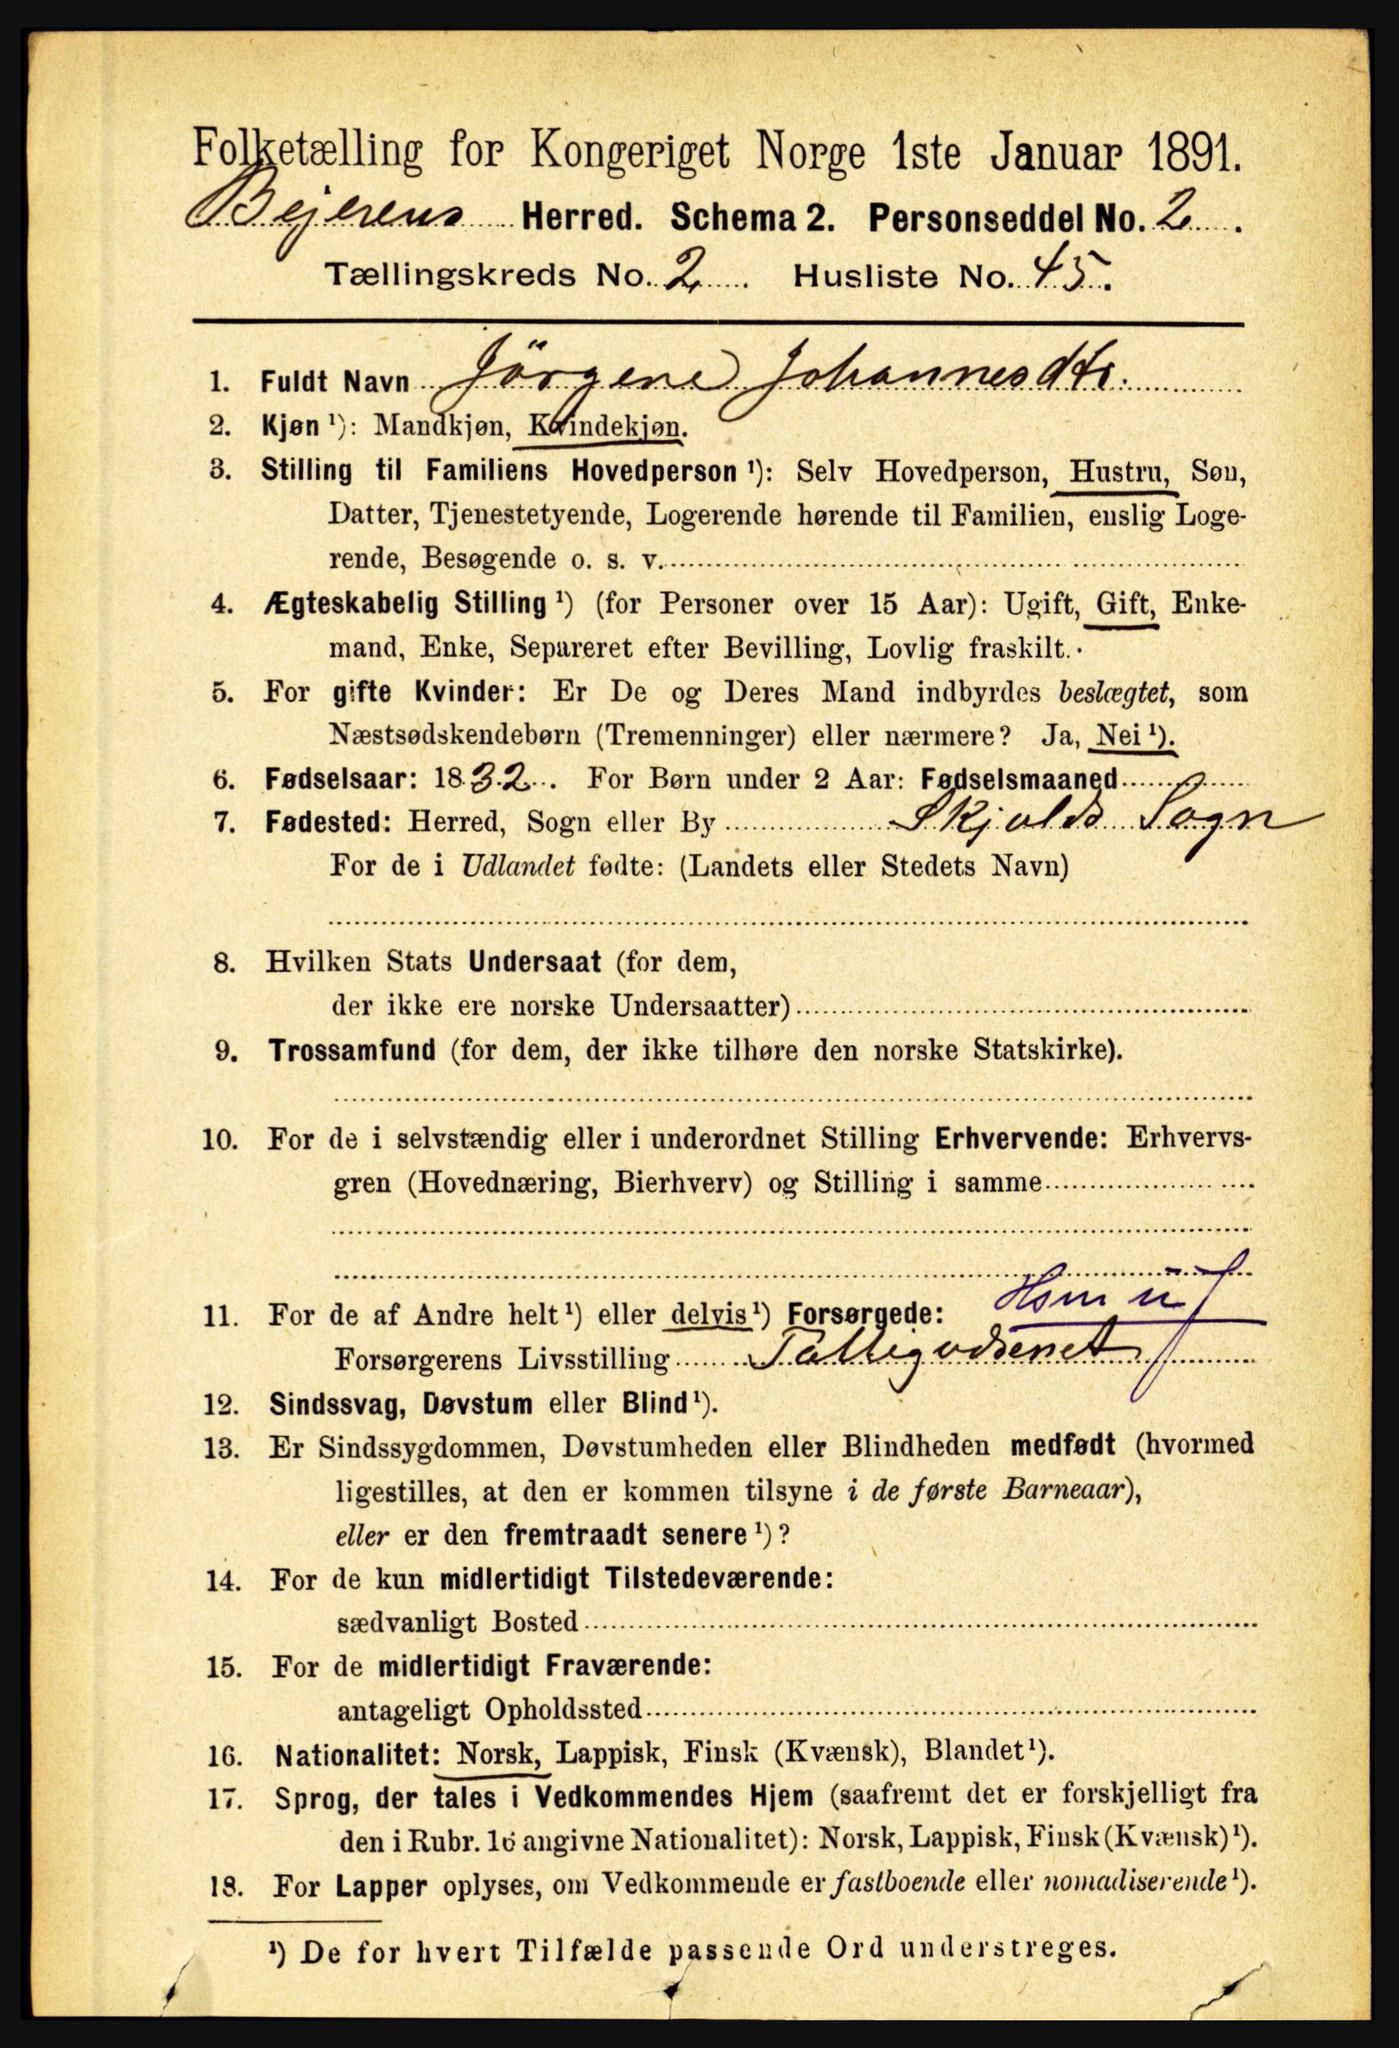 Folketælling for Kongeriget Norge 1ste Januar 1891.
Bejerens Herred. Schema 2. Personseddel No. 2.
Tællingskreds No. 2 Husliste No. 45.
1. Fuldt Navn Jörgene Johannesdtr.
2. Kjøn ¹): Mandkjøn, Kvindekjøn.
3. Stilling til Familiens Hovedperson ¹): Selv Hovedperson, Hustru, Søn,
Datter, Tjenestetyende, Logerende hørende til Familien, enslig Loge-
rende, Besøgende o. s. v.
4. Ægteskabelig Stilling ¹) (for Personer over 15 Aar): Ugift, Gift, Enke-
mand, Enke, Separeret efter Bevilling, Lovlig fraskilt.
5. For gifte Kvinder: Er De og Deres Mand indbyrdes beslægtet, som
Næstsødskendebørn (Tremenninger) eller nærmere? Ja, Nei ¹).
6. Fødselsaar: 1832. For Børn under 2 Aar: Fødselsmaaned
7. Fødested: Herred, Sogn eller By Skjolds Sogn
For de i Udlandet fødte: (Landets eller Stedets Navn)
8. Hvilken Stats Undersaat (for dem,
der ikke ere norske Undersaatter)
9. Trossamfund (for dem, der ikke tilhøre den norske Statskirke).
10. For de i selvstændig eller i underordnet Stilling Erhvervende: Erhvervs-
gren (Hovednæring, Bierhverv) og Stilling i samme
11. For de af Andre helt ¹) eller delvis ¹) Forsørgede:
Forsørgerens Livsstilling
12. Sindssvag, Døvstum eller Blind ¹).
13. Er Sindssygdommen, Døvstumheden eller Blindheden medfødt (hvormed
ligestilles, at den er kommen tilsyne i de første Barneaar),
eller er den fremtraadt senere ¹)?
14. For de kun midlertidigt Tilstedeværende:
sædvanligt Bosted
15. For de midlertidigt Fraværende:
antageligt Opholdssted
16. Nationalitet: Norsk, Lappisk, Finsk (Kvænsk), Blandet ¹).
17. Sprog, der tales i Vedkommendes Hjem (saafremt det er forskjelligt fra
den i Rubr. 16 angivne Nationalitet): Norsk, Lappisk, Finsk (Kvænsk) ¹).
18. For Lapper oplyses, om Vedkommende er fastboende eller nomadiserende ¹).
¹) De for hvert Tilfælde passende Ord understreges.